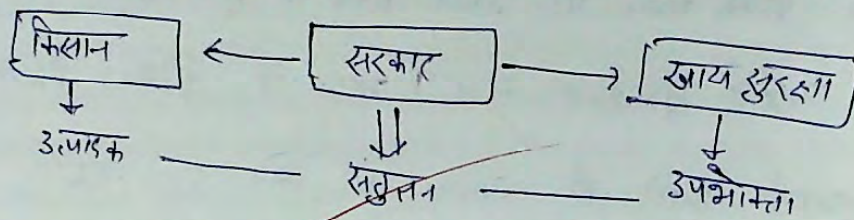 किसान ← सरकार → खाद्य सुरक्षा
उत्पादक — सन्तुलन — उपभोक्ता